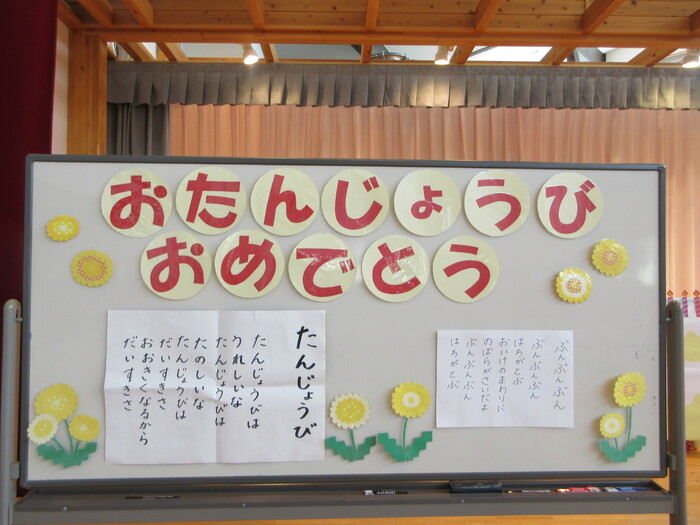 おたんじょうび
おめでとう
たんじょうび
たんじょうびは
うれしいな
たんじょうびは
たのしいな
たんじょうびは
だいすきさ
おおきくなるから
だいすきさ
ぶんぶんぶん
ぶんぶんぶん
はちがとぶ
おいけのまわりに
のばらがさいたよ
ぶんぶんぶん
はちがとぶ